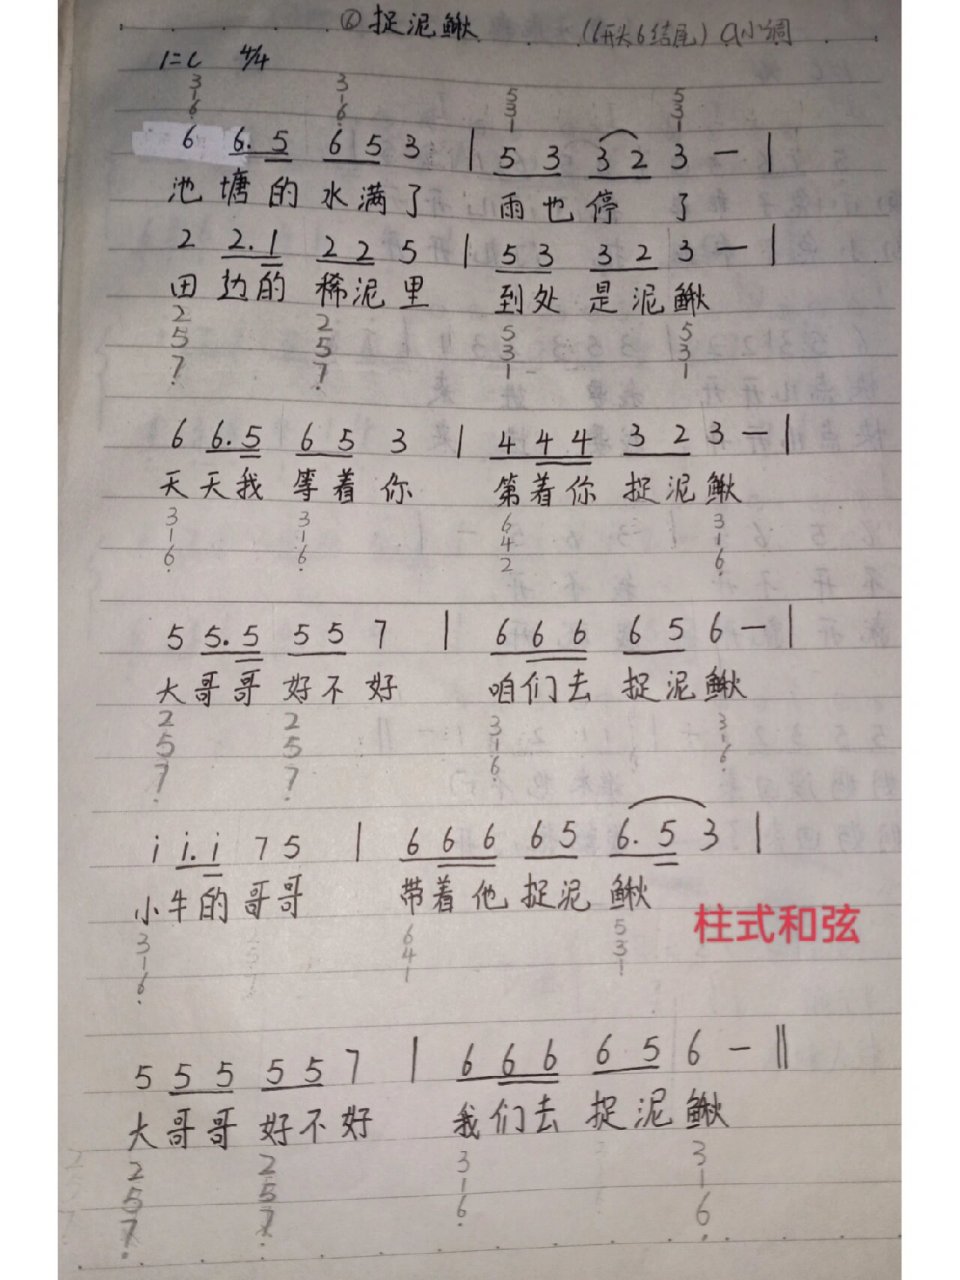 ⑥ 捉泥鳅 (6开头6结尾) a小调
1=C 4/4
3 3 5 5
1 1 3 3
6. 6. 1 1
6 6. 5 6 5 3 | 5 3 3 2 3 — |
池塘的水满了 雨也停 了
2 2. 1 2 2 5 | 5 3 3 2 3 — |
田边的稀泥里 到处是泥鳅
2 2 5 5
5 5 3 3
7. 7. 1 1
6 6. 5 6 5 3 | 4 4 4 3 2 3 — |
天天我等着你 等着你捉泥鳅
3 3 6 3
1 1 4 1
6. 6. 2 6.
5 5. 5 5 5 7 | 6 6 6 6 5 6 — |
大哥哥好不好 咱们去捉泥鳅
2 2 3 3
5 5 1 1
7. 7. 6. 6.
i i. i 7 5 | 6 6 6 6 5 6. 5 3 |
小牛的哥哥 带着他捉泥鳅
柱式和弦
3 2 6 5
1 5 4 3
6. 7. 1 1
5 5 5 5 5 7 | 6 6 6 6 5 6 — ||
大哥哥好不好 我们去捉泥鳅
2 2 3 3
5 5 1 1
7. 7. 6. 6.